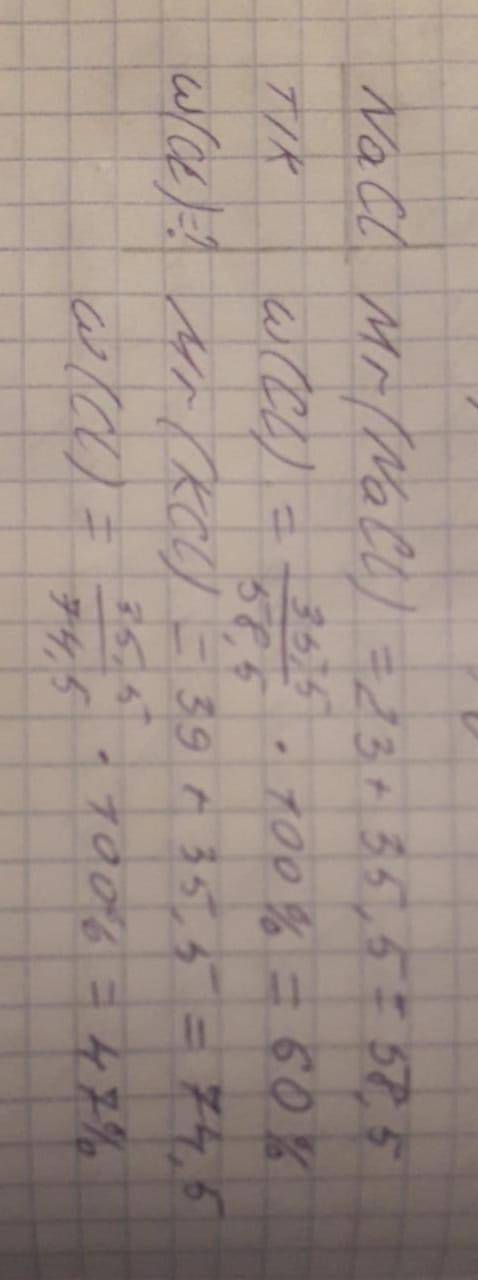 NaCl Mr(NaCl) = 23 + 35,5 = 58,5
w(Cl) = 35,5/58,5 · 100% = 60%
w(Cl)=? Mr(KCl) = 39 + 35,5 = 74,5
w(Cl) = 35,5/74,5 · 100% = 47%